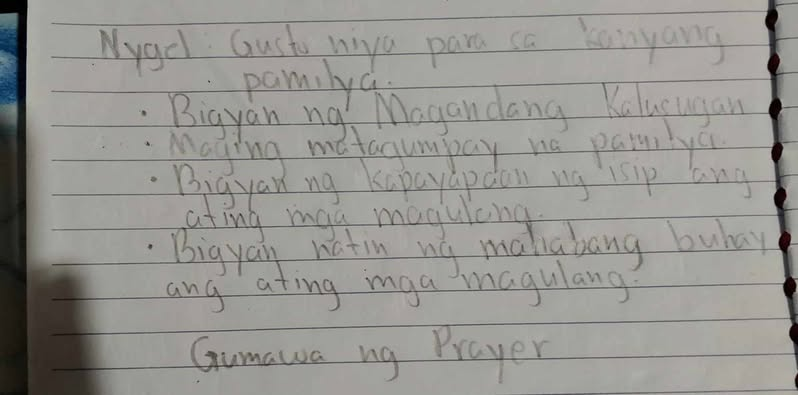 Nygel: Gusto niya para sa kanyang
pamilya.
• Bigyan ng Magandang Kalusugan
• Maging matagumpay na pamilya.
• Bigyan ng kapayapaan ng isip ang
ating mga magulang.
• Bigyan natin ng mahabang buhay
ang ating mga magulang.
Gumawa ng Prayer